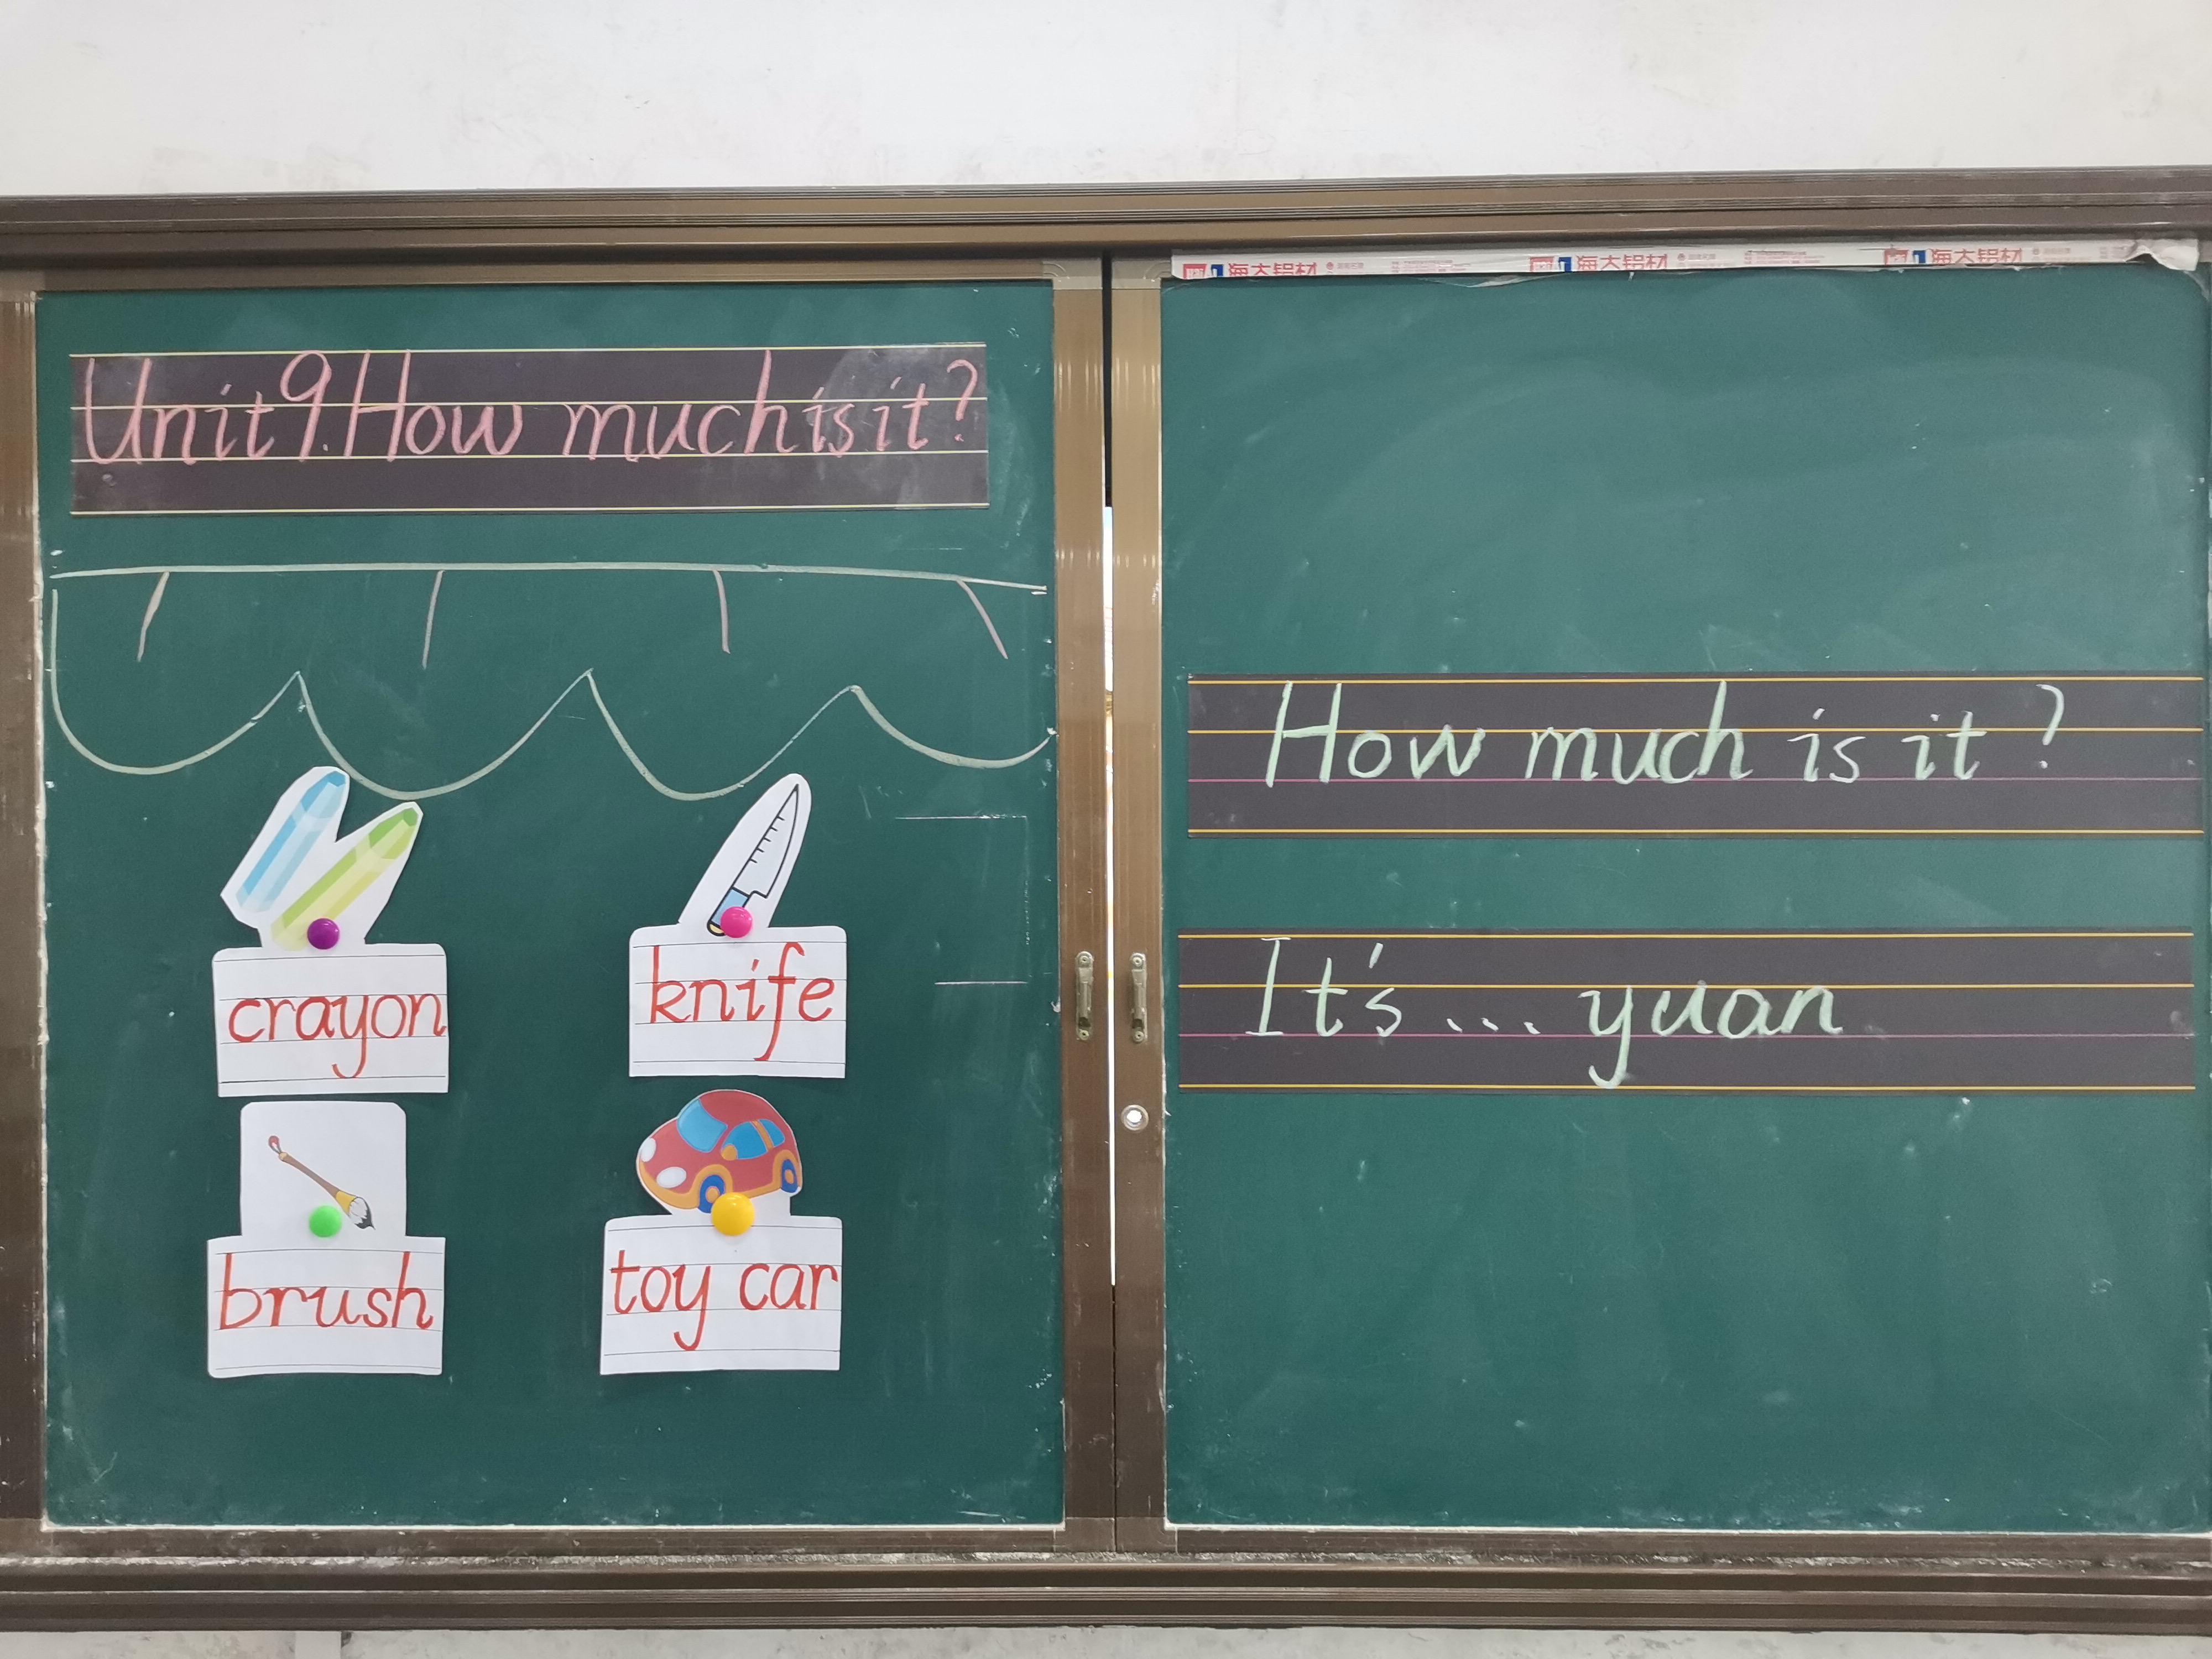 Unit 9. How much is it?
海大铝材 海大铝材 海大铝材
crayon
knife
brush
toy car
How much is it?
It's ... yuan